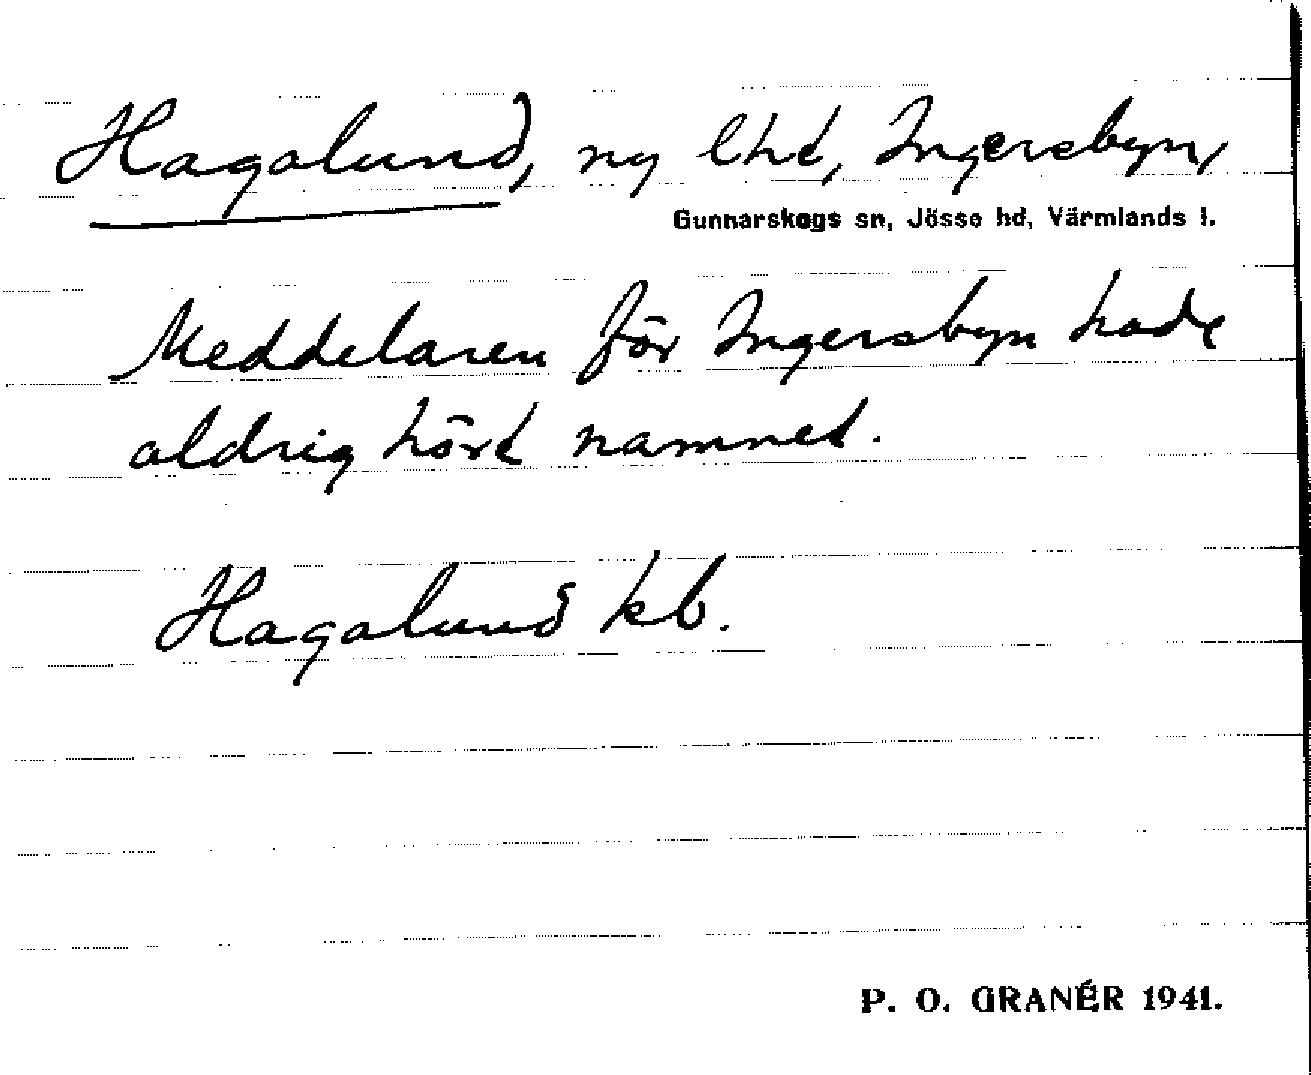 Hagalund, ny lht, Ingersbyn,
Gunnarskogs sn, Jösse hd, Värmlands l.
Meddelaren för Ingersbyn hade
aldrig hört namnet.
Hagalund kb.
P. O. GRANÉR 1941.